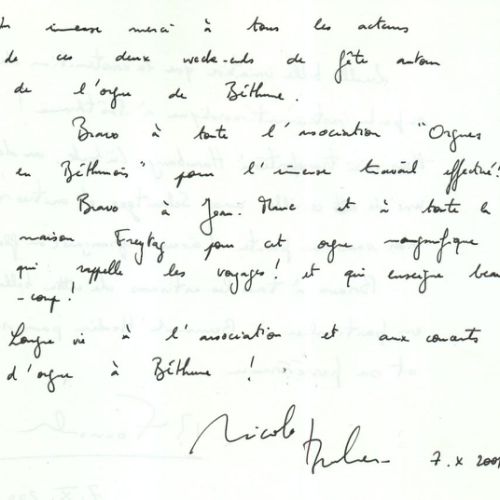 immense merci à tous les acteurs
de ces deux week-ends de fête autour
de l'orgue de Béthune.
Bravo à toute l'association "Orgues
en Béthunois" pour l'immense travail effectué!
Bravo à Jean-Marc et à toute la
maison Freytag pour cet orgue magnifique
qui rappelle les voyages! et qui enseigne beau
-coup!
Longue vie à l'association et aux concerts
d'orgue à Béthune!
Nicole
7.X 2001